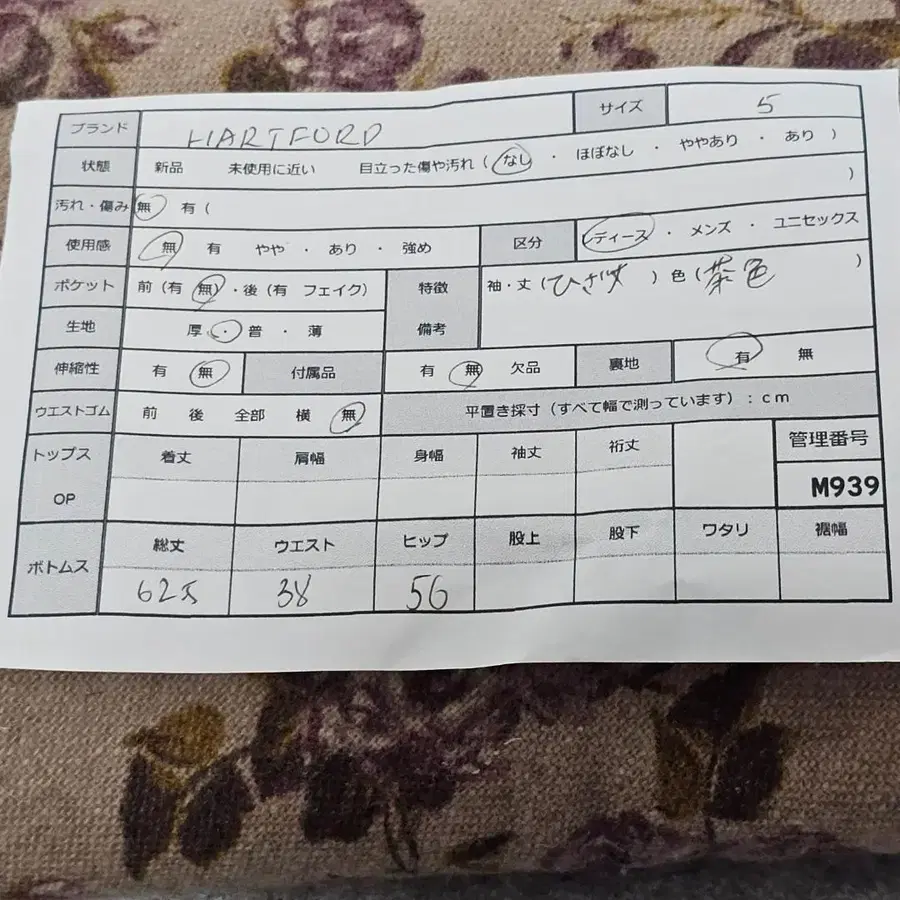 ブランド HARTFORD サイズ 5
状態 新品 未使用に近い 目立った傷や汚れ ( なし ・ ほぼなし ・ ややあり ・ あり )
汚れ・傷み 無 有 ( )
使用感 無 有 やや ・ あり ・ 強め 区分 レディース ・ メンズ ・ ユニセックス
ポケット 前 (有 無) ・後 (有 フェイク) 特徴 袖・丈 (ひざ丈 ) 色 (茶色 )
生地 厚 ・ 普 ・ 薄 備考
伸縮性 有 無 付属品 有 無 欠品 裏地 有 無
ウエストゴム 前 後 全部 横 無 平置き採寸 (すべて幅で測っています) : cm
トップス 着丈 肩幅 身幅 袖丈 裄丈 管理番号
OP M939
ボトムス 総丈 ウエスト ヒップ 股上 股下 ワタリ 裾幅
62.5 38 56